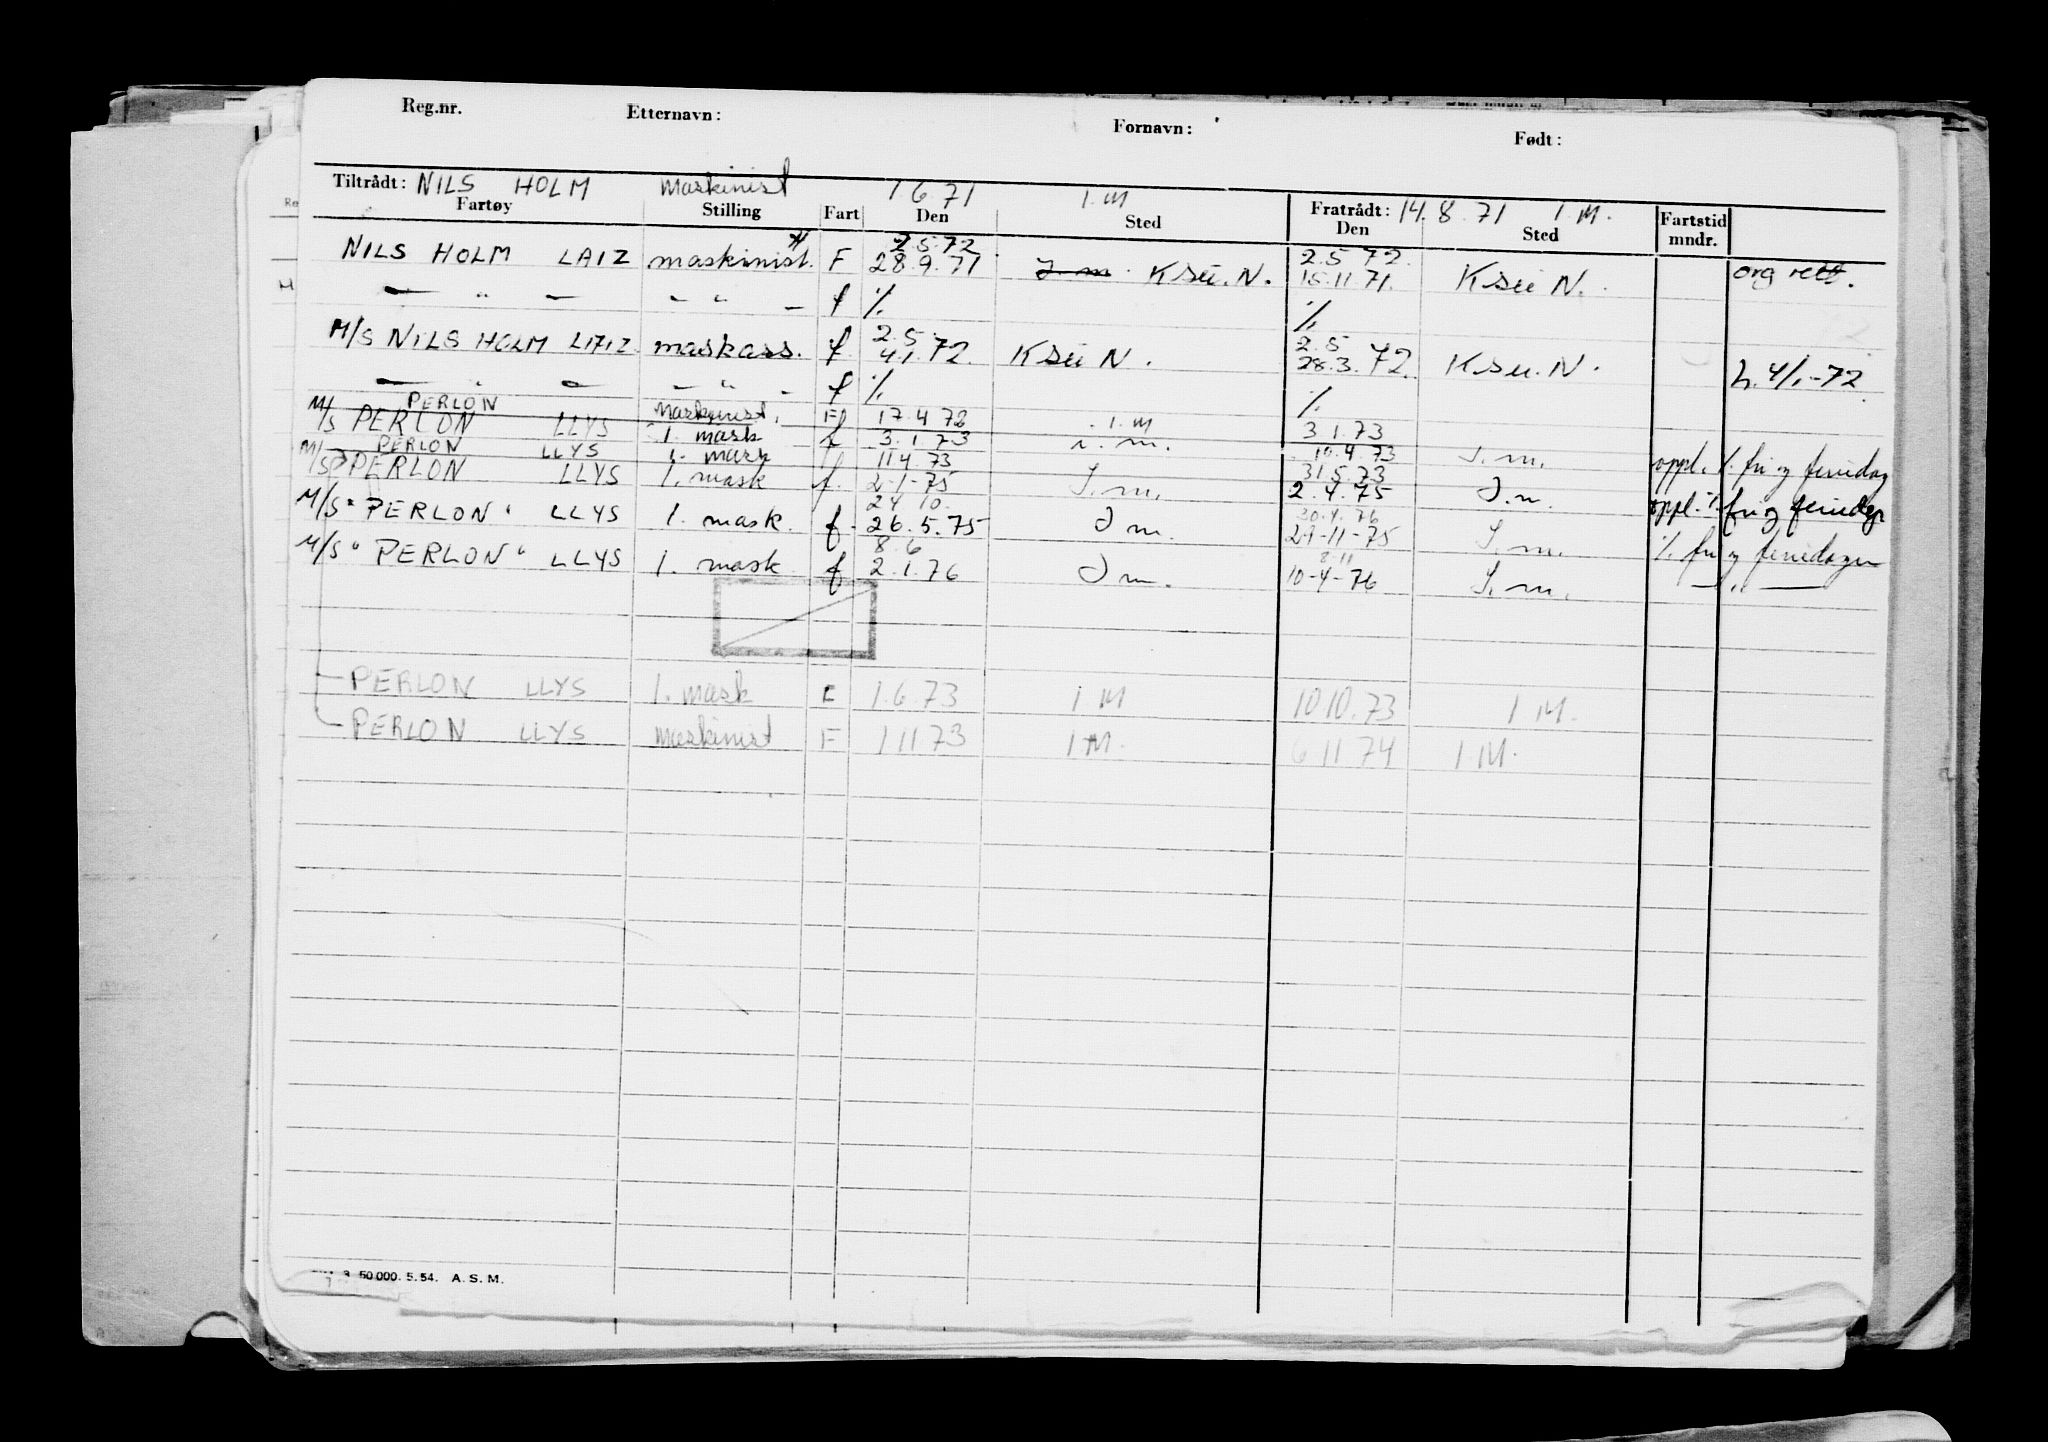 Reg.nr. Etternavn: Fornavn: Født:
Tiltrådt: NILS HOLM Maskinist 1.6.71 I.M Fratrådt: 14.8.71 I.M.
Fartøy Stilling Fart Den Sted Den Sted Fartstid mndr.
2.5.72 2.5.72
NILS HOLM LAIZ maskinist. F 28.9.71 J.m. K Sü.N. 15.11.71. K Sü N. org rett.
— " — — " — f %. %.
2.5. 2.5
M/S NILS HOLM LAIZ maskass. f 4.1.72. K Sü N. 28.3.72. K Sü.N. h. 4/1-72
— " — — " — f %. %.
PERLON Maskinist. F 17.4.72 I.M
M/S PERLON LLYS 1. mask f 3.1.73 i.m. 3.1.73
PERLON LLYS 1. mask 11.4.73 10.4.73 J.m. oppl. %. fri og feriedag
M/S PERLON LLYS 1. mask f. 2-1-75 J.m. 31.5.73
2.4.75 J.m. oppl. %. fri og feriedgr
24.10. 30.4.76
M/S "PERLON" LLYS 1. mask. f. 26.5.75 J m. 21-11-75 J.m. %. fri og feriedager
8.6 8.11
M/S "PERLON" LLYS 1. mask f 2.1.76 J m. 10-4-76 J.m. — " —
PERLON LLYS 1. mask F 1.6.73 I M 10.10.73 I M.
PERLON LLYS Maskinist F 1.11.73 I M. 6.11.74 I M.
50.000. 5. 54. A. S. M.